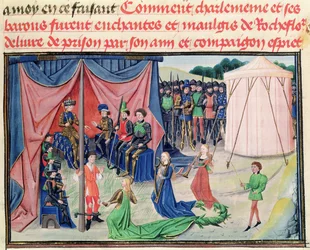 amoy en ce faisant Comment charlemeine et ses
barons furent enchantes et maulgis de Rocheflor
delivre de prison par son ann et compaignon espiet